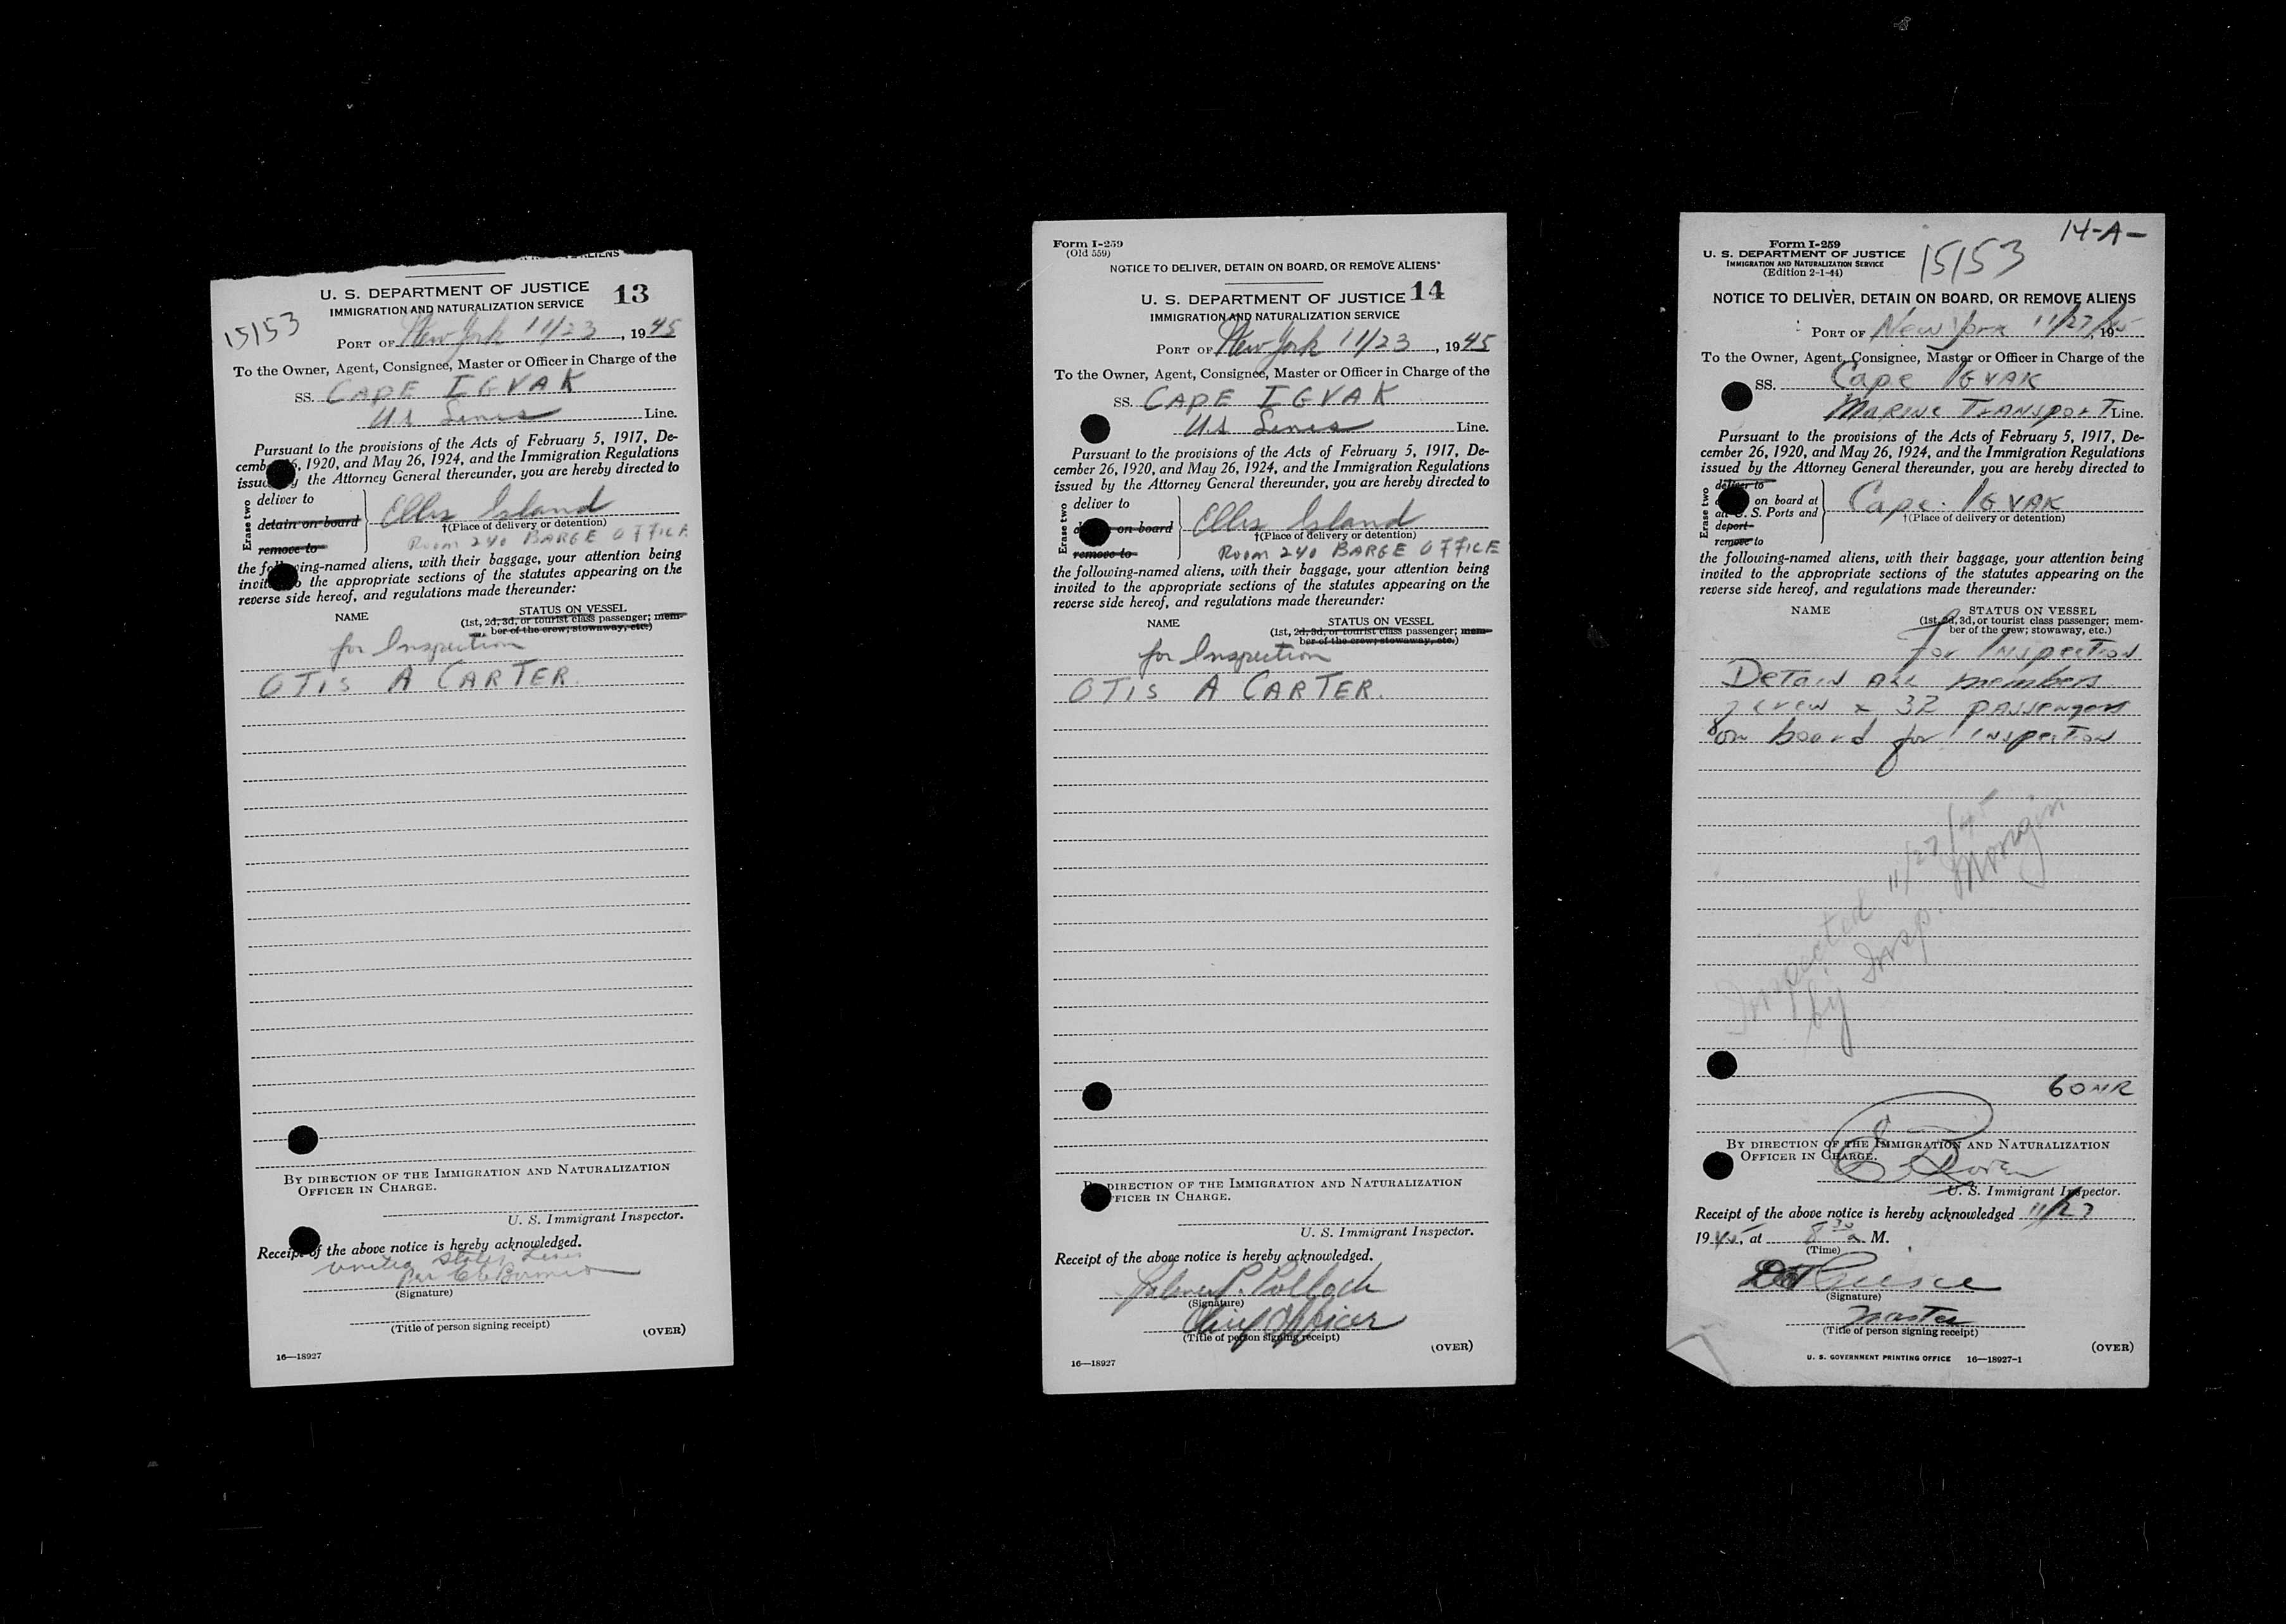 U. S. DEPARTMENT OF JUSTICE 13
IMMIGRATION AND NATURALIZATION SERVICE
15153
PORT OF New York 11/23, 1945
To the Owner, Agent, Consignee, Master or Officer in Charge of the
SS. CAPE IGVAK
U.S Lines Line.
Pursuant to the provisions of the Acts of February 5, 1917, De-
cemb 6, 1920, and May 26, 1924, and the Immigration Regulations
issued y the Attorney General thereunder, you are hereby directed to
Erase two
deliver to
detain on board
remove to
Ellis Island
†(Place of delivery or detention)
ROOM 240 BARGE OFFICE
the following-named aliens, with their baggage, your attention being
invited to the appropriate sections of the statutes appearing on the
reverse side hereof, and regulations made thereunder:
NAME STATUS ON VESSEL
(1st, 2d, 3d, or tourist class passenger; mem-
ber of the crew; stowaway, etc.)
for Inspection
OTIS A CARTER.
BY DIRECTION OF THE IMMIGRATION AND NATURALIZATION
OFFICER IN CHARGE.
U. S. Immigrant Inspector.
Receipt of the above notice is hereby acknowledged.
United States Lines
Per
(Signature)
(Title of person signing receipt)
(OVER)
16—18927
Form I-259
(Old 559)
NOTICE TO DELIVER, DETAIN ON BOARD, OR REMOVE ALIENS*
U. S. DEPARTMENT OF JUSTICE 14
IMMIGRATION AND NATURALIZATION SERVICE
PORT OF New York 11/23, 1945
To the Owner, Agent, Consignee, Master or Officer in Charge of the
SS. CAPE IGVAK
U.S Lines Line.
Pursuant to the provisions of the Acts of February 5, 1917, De-
cember 26, 1920, and May 26, 1924, and the Immigration Regulations
issued by the Attorney General thereunder, you are hereby directed to
Erase two
deliver to
d on board
remove to
Ellis Island
†(Place of delivery or detention)
ROOM 240 BARGE OFFICE
the following-named aliens, with their baggage, your attention being
invited to the appropriate sections of the statutes appearing on the
reverse side hereof, and regulations made thereunder:
NAME STATUS ON VESSEL
(1st, 2d, 3d, or tourist class passenger; mem-
ber of the crew; stowaway, etc.)
for Inspection
OTIS A CARTER.
BY DIRECTION OF THE IMMIGRATION AND NATURALIZATION
OFFICER IN CHARGE.
U. S. Immigrant Inspector.
Receipt of the above notice is hereby acknowledged.
P. Pollock
(Signature)
Chief Officer
(Title of person signing receipt)
(OVER)
16—18927
14-A-
Form I-259
U. S. DEPARTMENT OF JUSTICE
IMMIGRATION AND NATURALIZATION SERVICE
(Edition 2-1-44)
15153
NOTICE TO DELIVER, DETAIN ON BOARD, OR REMOVE ALIENS
PORT OF New York 11/23/45, 19
To the Owner, Agent, Consignee, Master or Officer in Charge of the
SS. Cape IGVAK
MARINE TRANSPORT Line.
Pursuant to the provisions of the Acts of February 5, 1917, De-
cember 26, 1920, and May 26, 1924, and the Immigration Regulations
issued by the Attorney General thereunder, you are hereby directed to
Erase two
deliver to
on board at
all U. S. Ports and
deport
remove to
Cape IGVAK
†(Place of delivery or detention)
the following-named aliens, with their baggage, your attention being
invited to the appropriate sections of the statutes appearing on the
reverse side hereof, and regulations made thereunder:
NAME STATUS ON VESSEL
(1st, 2d, 3d, or tourist class passenger; mem-
ber of the crew; stowaway, etc.)
For Inspection
Detain all members
of crew & 32 passengers
on board for inspection
Inspected 11/23/45
by Insp.
60 NR
BY DIRECTION OF THE IMMIGRATION AND NATURALIZATION
OFFICER IN CHARGE.
U. S. Immigrant Inspector.
Receipt of the above notice is hereby acknowledged 11/23
1945, at 8 30 a M.
(Time)
(Signature)
Master
(Title of person signing receipt)
U. S. GOVERNMENT PRINTING OFFICE 16—18927-1
(OVER)